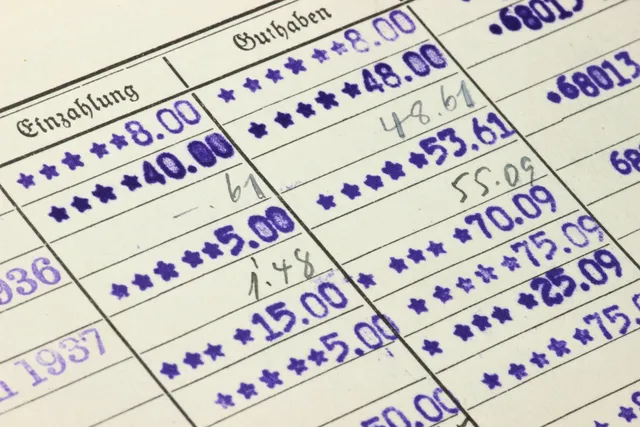 Einzahlung Guthaben
*****8.00 *****8.00 .68013
****40.00 ****48.00 .68013
—.61 48.61
*****5.00 ****53.61 68
936 1.48 55.09
****15.00 ****70.09
1937 *****5.00 ****75.09
50.00 ****25.09
****75.